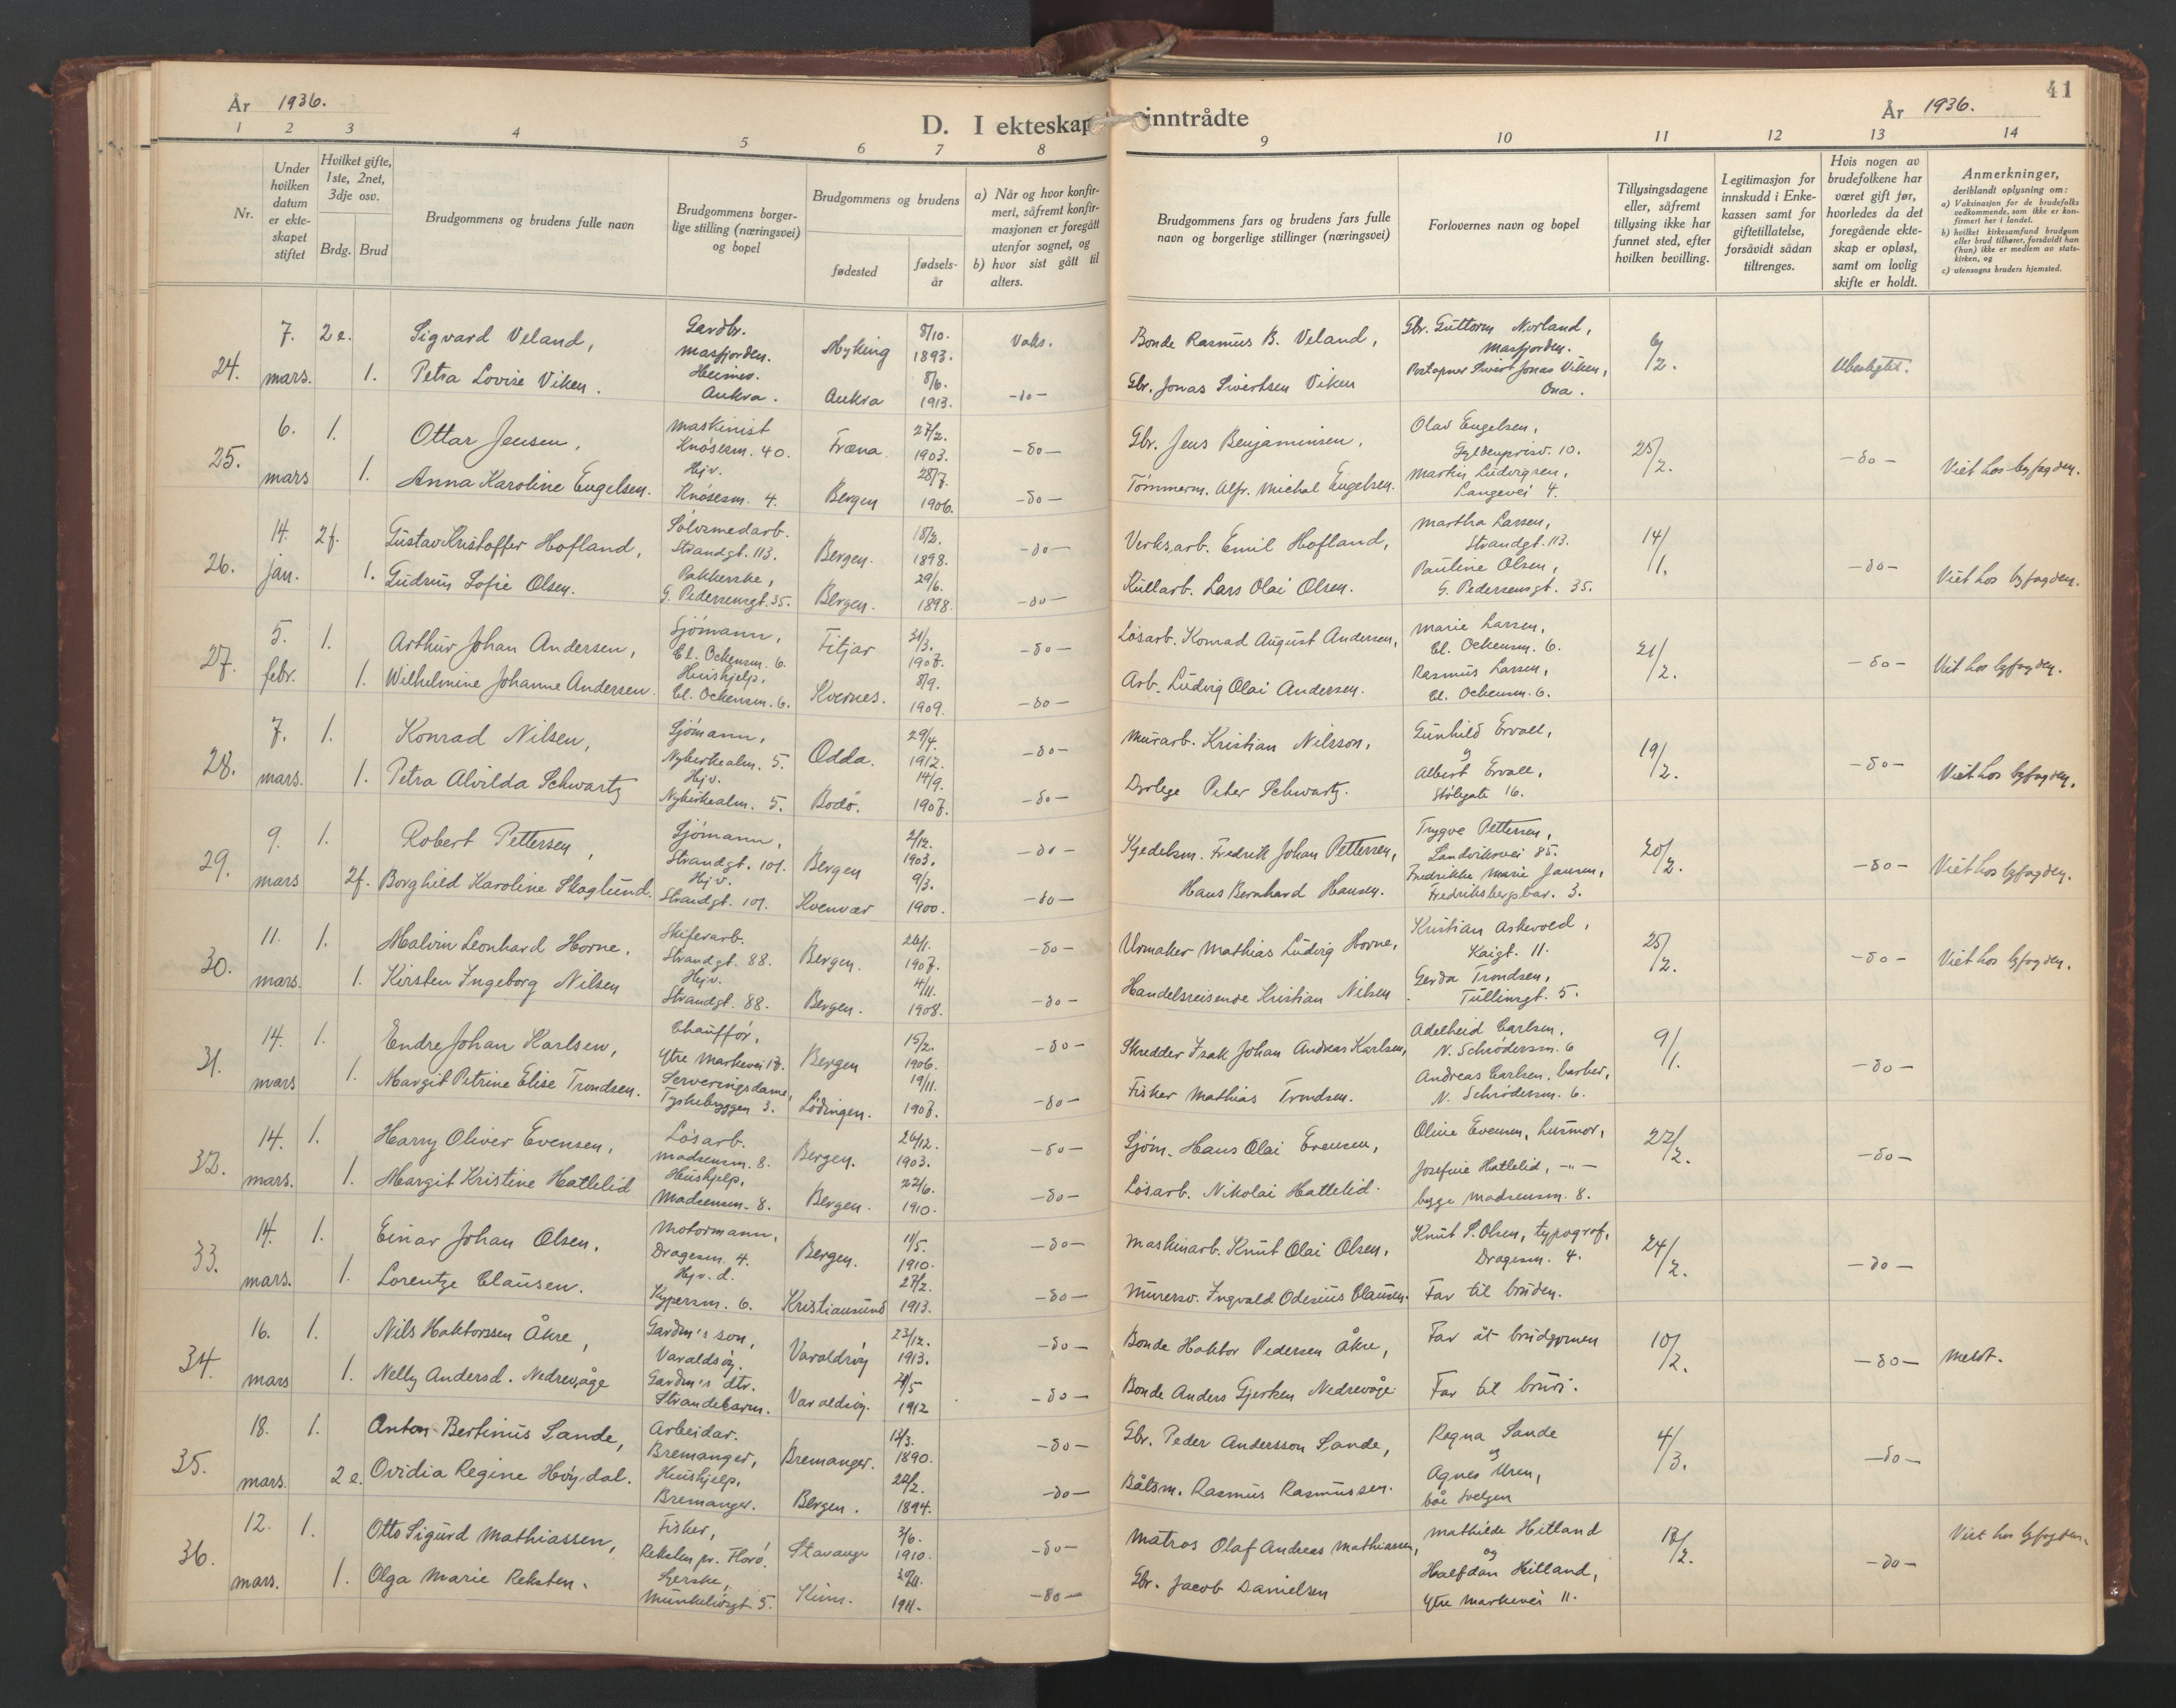 År 1936.
D. I ekteskap inntrådte
År 1936.
41
1 2 3 4 5 6 7 8 9 10 11 12 13 14
Nr.
Under hvilken datum er ekteskapet stiftet
Hvilket gifte, 1ste, 2net, 3dje osv.
Brdg. Brud
Brudgommens og brudens fulle navn
Brudgommens borgerlige stilling (næringsvei) og bopel
Brudgommens og brudens
fødested
fødselsår
a) Når og hvor konfirmert, såfremt konfirmasjonen er foregått utenfor sognet, og
b) hvor sist gått til alters.
Brudgommens fars og brudens fars fulle navn og borgerlige stillinger (næringsvei)
Forlovernes navn og bopel
Tillysingsdagene eller, såfremt tillysing ikke har funnet sted, efter hvilken bevilling.
Legitimasjon for innskudd i Enkekassen samt for giftetillatelse, forsåvidt sådan tiltrenges.
Hvis nogen av brudefolkene har været gift før, hvorledes da det foregående ekteskap er opløst, samt om lovlig skifte er holdt.
Anmerkninger,
deriblandt oplysning om:
a) Vaksinasjon for de brudefolks vedkommende, som ikke er konfirmert her i landet.
b) hvilket kirkesamfund brudgom eller brud tilhører, forsåvidt han (hun) ikke er medlem av statskirken, og
c) utensogns bruders hjemsted.
24. 7. mars. 2 e. Sigvard Veland, Gardbr. Masfjorden. Myking 8/10. 1893. Vaks. Bonde Rasmus B. Veland, Gbr. Guttorm Norland, Masfjorden. 6/2. Ubesligtet.
1. Petra Lovise Viken. Heimev. Aukra. Aukra 8/6. 1913. -do- Gbr. Jonas Sivertsen Viken Postopner Sivert Jonas Viken, Ona.
25. 6. mars 1. Ottar Jensen, Maskinist Knösesm. 40. Fræna. 27/2. 1903. -do- Gbr. Jens Benjaminsen, Olav Engelsen, Gyldenprisv. 10. 25/2. -do- Viet hos byfogden.
1. Anna Karoline Engelsen. Hjv. Knösesm. 4. Bergen 28/7. 1906. -do- Tömmerm. Alfr. Michal Engelsen. Martin Ludvigsen, Langevei 4.
26. 14. jan. 2f. Gustav Kristoffer Hofland, Sölvsmedarb. Strandgt. 113. Bergen. 18/2. 1898. -do- Verksarb. Emil Hofland, Martha Larsen, Strandgt. 113. 14/1. -do- Viet hos byfogden.
1. Gudrun Sofie Olsen. Pakkerske, G. Pedersensgt. 35. Bergen. 29/6. 1898. -do- Kullarb. Lars Olai Olsen. Pauline Olsen, G. Pedersensgt. 35.
27. 5. febr. 1. Arthur Johan Andersen, Sjömann, Cl. Ockensm. 6. Fitjar 21/3. 1907. -do- Lösarb. Konrad August Andersen, Marie Larsen, Cl. Ockensm. 6. 21/2. -do- Viet hos byfogden.
1. Wilhelmine Johanne Andersen. Huishjelp, Cl. Ockensm. 6. Kvernes. 8/9. 1909. -do- Arb. Ludvig Olai Andersen. Rasmus Larsen, Cl. Ockensm. 6.
28. 7. mars. 1. Konrad Nilsen, Sjömann, Nykirkealm. 5. Odda. 29/4. 1912. -do- Murarb. Kristian Nilsson, Gunhild Ervall, 19/2. -do- Viet hos byfogden.
1. Petra Alvilda Schwartz Hjv. Nykirkealm. 5. Bodö. 14/9. 1907. -do- Dyrlege Peter Schwartz. og Albert Ervall, Stölegate 16.
29. 9. mars 1. Robert Pettersen, Sjömann, Strandgt. 101. Bergen 2/12. 1903. -do- Kjedelsm. Fredrik Johan Pettersen, Trygve Pettersen, Sandviksvei 85. 20/2. -do- Viet hos byfogden.
2f. Borghild Karoline Skaglund. Hjv. Strandgt. 101. Kvenvær 9/3. 1900. -do- Hans Bernhard Hansen. Fredrikke Marie Jansen, Fredriksbergsbar. 3.
30. 11. mars. 1. Malvin Leonhard Horne. Skiferarb. Strandgt. 88. Bergen. 26/1. 1907. -do- Urmaker Mathias Ludvig Horne, Kristian Askevold, Kaigt. 11. 25/2. -do- Viet hos byfogden.
1. Kirsten Ingeborg Nilsen Hjv. Strandgt. 88. Bergen. 4/11. 1908. -do- Handelsreisende Kristian Nilsen Gerda Trondsen, Tullinsgt. 5.
31. 14. mars 1. Endre Johan Karlsen, Chaufför, Ytre Markevei 17. Bergen 15/2. 1906. -do- Skredder Isak Johan Andreas Karlsen, Adelheid Carlsen. N. Schrödersm. 6 9/1. -do-
1. Margit Petrine Elise Trondsen. Serveringsdame, Tyskebryggen 3. Lödingen. 19/11. 1907. -do- Fisker Mathias Trondsen. Andreas Carlsen, barber, N. Schrödersm. 6.
32. 14. mars. 1. Harry Oliver Evensen, Lösarb. Madsensm. 8. Bergen. 26/12. 1903. -do- Sjöm. Hans Olai Evensen, Oline Evensen, husmor, 22/2. -do-
1. Margit Kristine Hatlelid Huishjelp, Madsensm. 8. Bergen. 22/6. 1910. -do- Lösarb. Nikolai Hattelid. Josefine Hatlelid, -"- begge Madsensm. 8.
33. 14. mars. 1. Einar Johan Olsen. Motormann, Dragesm. 4. Bergen. 11/5. 1910. -do- Maskinarb. Knut Olai Olsen, Knut S. Olsen, typograf, Dragesm. 4. 24/2. -do-
1. Lorentze Clausen. Hjv. d. Kypersm. 6. Kristiansund 27/2. 1913. -do- Murersv. Ingvald Odinius Clausen. Far til bruden.
34. 16. mars 1. Nils Haktorssen Åkre, Gardm's son, Varaldsöy. Varaldsöy 23/12. 1913. -do- Bonde Haktor Pedersen Åkre, Far åt brudgomen 10/2. -do- Meldt.
1. Nelly Andersd. Nedrevåge Gardm's dtr. Strandebarm. Varaldsöy. 21/5 1912 -do- Bonde Anders Gjerken Nedrevåge Far til brur.
35. 18. mars. 1. Anton Bertinus Sande, Arbeidar. Bremanger, Bremanger. 13/3. 1890. -do- Gbr. Peder Andersson Sande, Ragna Sande 4/3. -do-
2 e. Ovidia Regine Høydal. Huishjelp, Bremanger. Bergen. 22/2. 1894. -do- Båtsm. Rasmus Rasmussen. og Agnes Uren, båe Svelgen
36. 12. mars. 1. Otto Sigurd Mathiassen, Fisker, Reksten pr. Florö. Stavanger 3/6. 1910. -do- Matros Olaf Andreas Mathiassen, Mathilde Hitland 12/2. -do- Viet hos byfogden.
1. Olga Marie Reksten. Syerske, Munkelivsgt. 5. Kinn. 1911. -do- Gbr. Jacob Danielsen og Halfdan Hitland, Ytre Markevei 11.